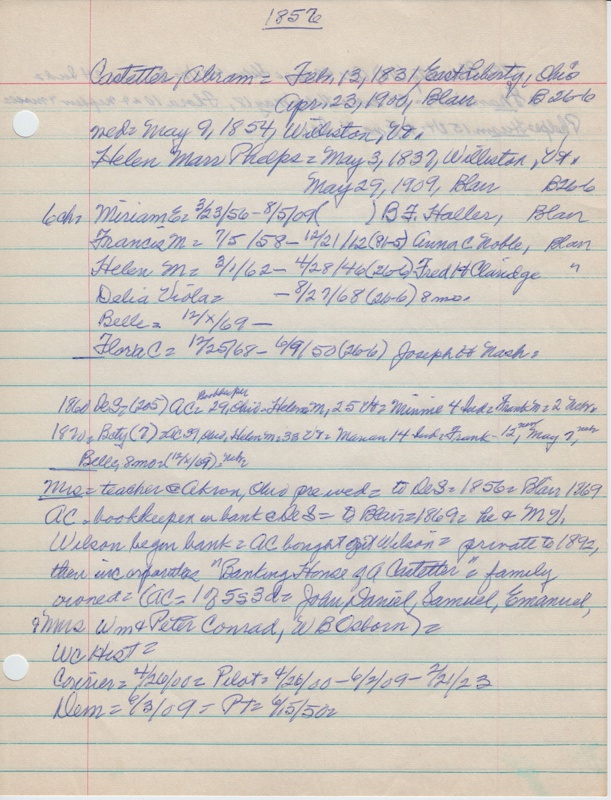 1856
Castetter, Abram = Feb, 13, 1831, East Liberty, Ohio
Apr, 23, 1900, Blair B26-6
med = May 9, 1854, Williston, Vt.
Helen Marr Phelps = May 3, 1837, Williston, Vt.
May 29, 1909, Blair B26-6
6 ch = Miriam E = 3/23/56 - 8/5/09 ( ) B.F. Haller, Blair
Francis M = 7/5/58 - 12/21/12 (81-5) Anna C Noble, Blair
Helen M = 3/1/62 - 4/28/46 (26-6) Fred H Claridge "
Delia Viola = - 8/27/68 (26-6) 8 mo.
Belle = 12/x/69 -
Flora C = 12/25/68 - 6/9/50 (26-6) Joseph H Nash =
Bookkeeper
1860 DeS = (205) AC = 29, Ohio = Helen = M, 25 Vt = Minnie 4 Ind = Frank M = 2 Nebr.
1870 = Bcty (7) = AC 39, Ohio, Helen M = 33 Vt = Marian 14 Ind = Frank - 12, Nebr May 7, Nebr
Belle, 8 mo = (12/x/69) = Nebr
Mrs = teacher @ Akron, Ohio pre wed = to DeS = 1856 = Blair 1869
AC = bookkeeper in bank @ DeS = to Blair = 1869 = he & M V.
Wilson began bank = AC bought out Wilson = private to 1892,
then incorporates "Banking House of A Castetter" = family
owned = (AC = 1 of 5s 3d = John, Daniel, Samuel, Emanuel,
& Mrs Wm & Peter Conrad, W B Osborn) =
WC Hist =
Courier = 4/26/00 = Pilot = 4/26/00 - 6/2/09 - 2/21/23
Dem = 6/3/09 = PT = 6/15/50 =